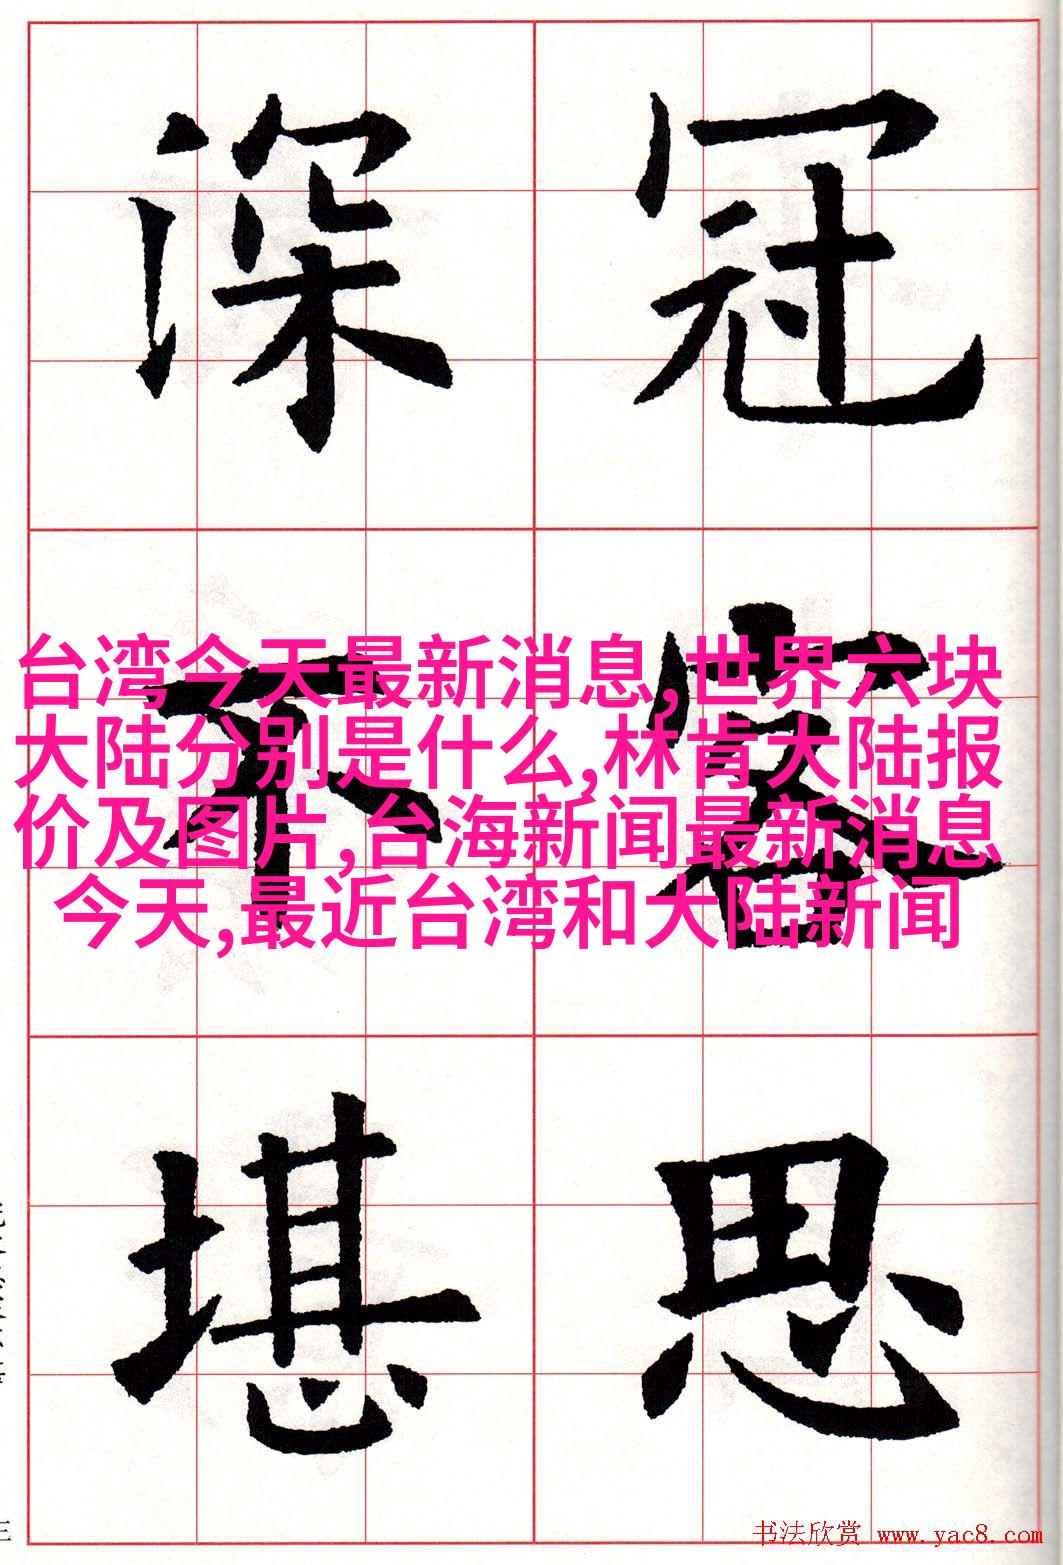 冠容思
深不堪
台湾今天最新消息,世界六块
大陆分别是什么,林肯大陆报
价及图片,台海新闻最新消息
今天,最近台湾和大陆新闻
书法欣赏 www.yac8.com